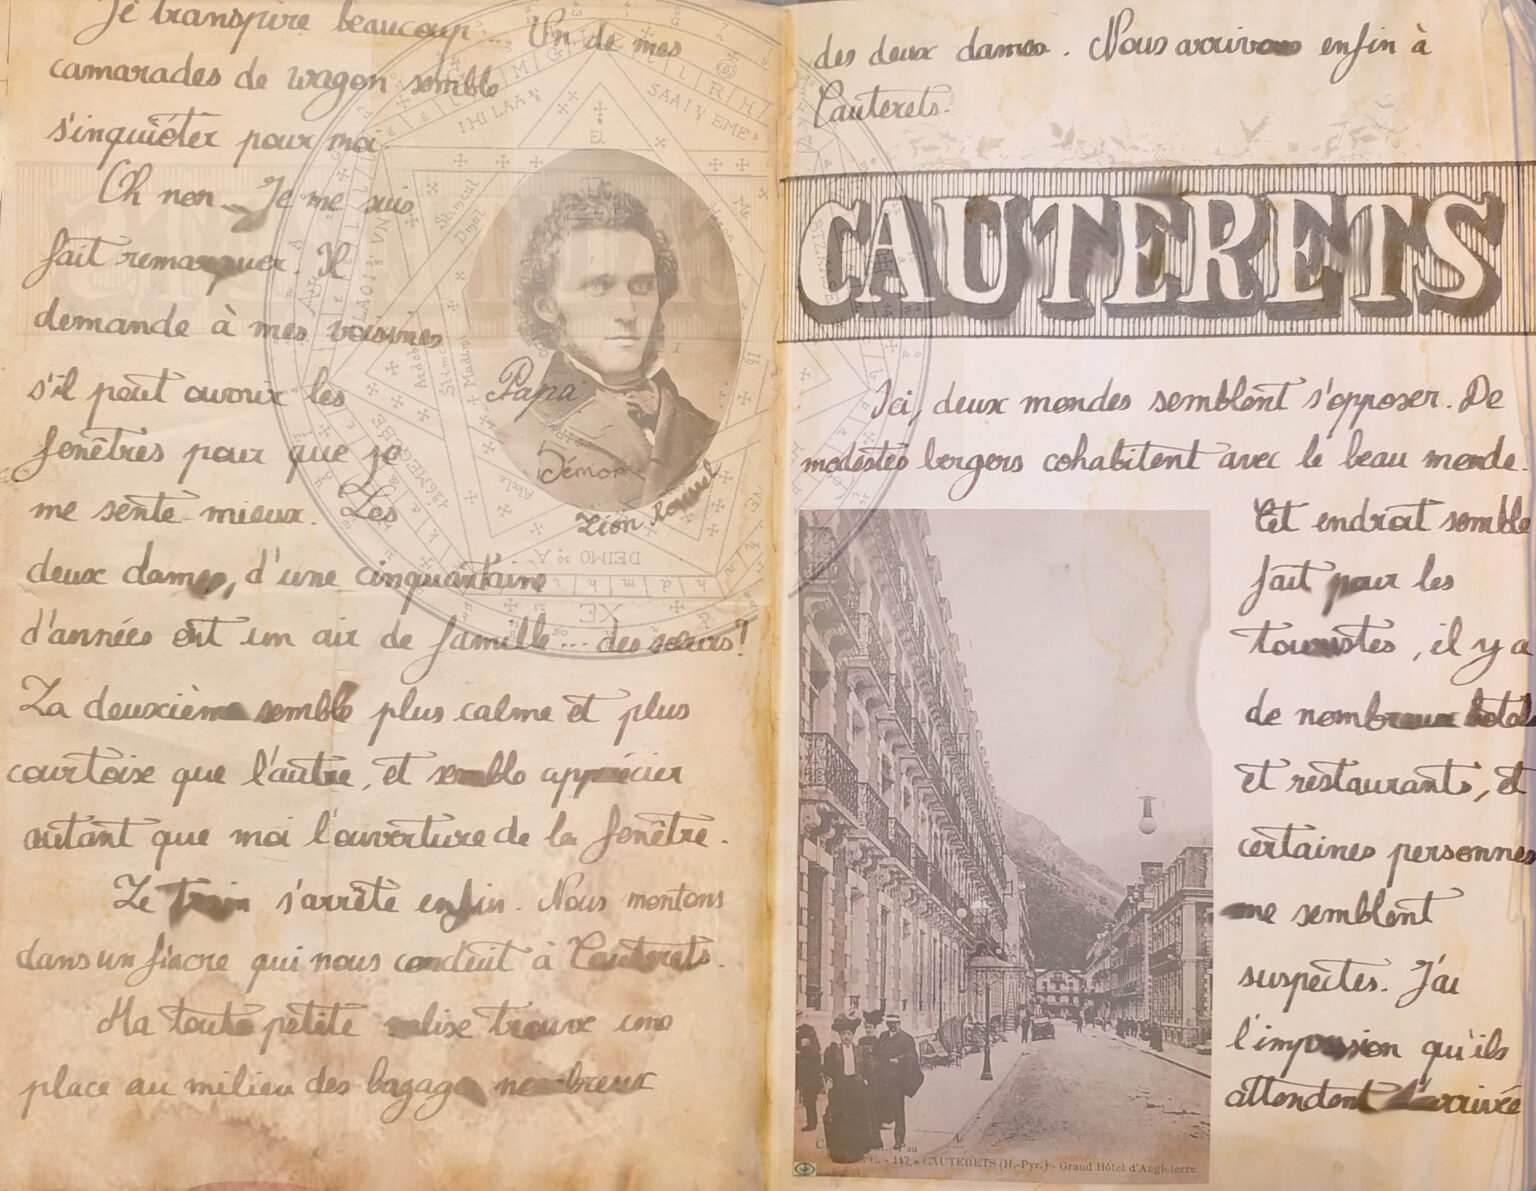 Je transpire beaucoup... Un de mes
camarades de wagon semble
s'inquiéter pour moi.
Oh non... Je me suis
fait remarquer. Il
demande à mes voisines
s'il peut ouvrir les
fenêtres pour que je
me sente mieux. Les
deux dames, d'une cinquantaine
d'années ont un air de famille... des sœurs?
La deuxième semble plus calme et plus
courtoise que l'autre, et semble apprécier
autant que moi l'ouverture de la fenêtre.
Le train s'arrête enfin. Nous montons
dans un fiacre qui nous conduit à Cauterets.
Ma toute petite valise trouve une
place au milieu des bagages nombreux
Papa
Démon
Léon Roussel
SAAI
EME
IHI LAA
DEIMO
XE
des deux dames. Nous arrivons enfin à
Cauterets.
CAUTERETS
Ici, deux mondes semblent s'opposer. De
modestes bergers cohabitent avec le beau monde.
Cet endroit semble
fait pour les
touristes, il y a
de nombreux hotels
et restaurants, et
certaines personnes
me semblent
suspectes. J'ai
l'impression qu'ils
attendent l'arrivée
C. - 117. - CAUTERETS (H.-Pyr.) - Grand Hôtel d'Angleterre